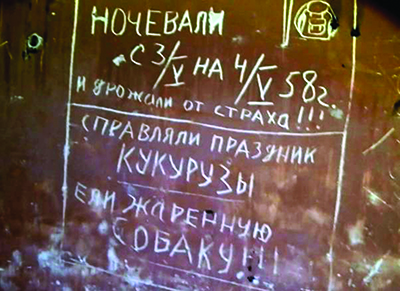 НОЧЕВАЛИ
С 3/V НА 4/V 58г.
и дрожали от страха!!!
СПРАВЛЯЛИ ПРАЗДНИК
КУКУРУЗЫ
ЕЛИ ЖАРЕННУЮ
СОБАКУ!!!